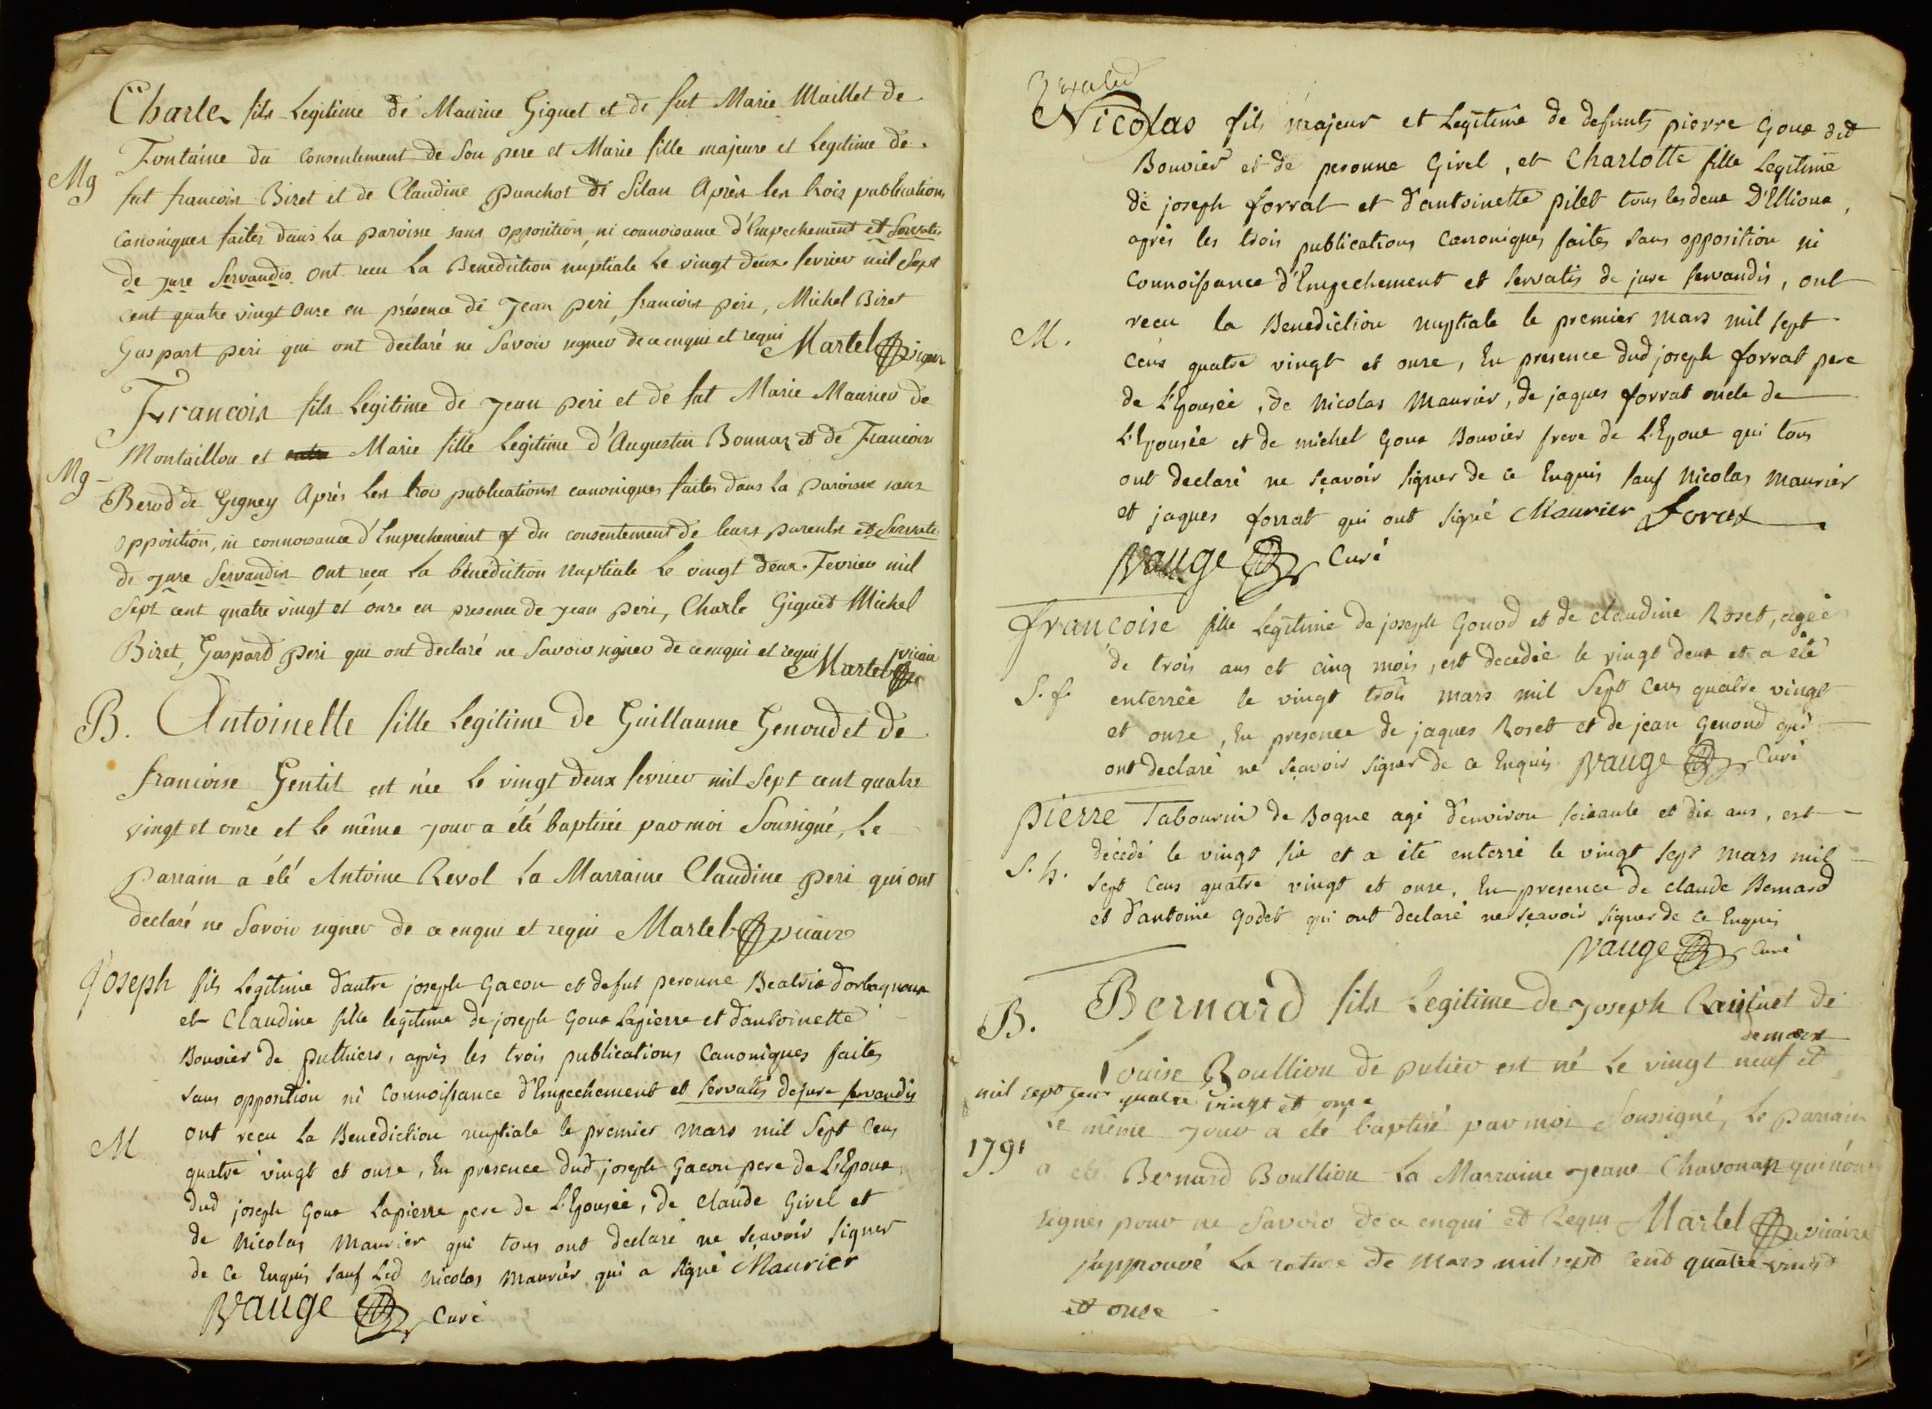 Charles fils Legitime de Maurice Giguet et de fut Marie Maillet de
Fontaine du Consentement de Son pere et Marie fille majeure et Legitime de
Mg
fut francois Biret et de Claudine panchot de Silan Après les trois publications
Canoniques faites dans La paroisse sans Opposition, ni connoissance d'Empechement et Servatis
de jure Servandis ont recu La Benediction nuptiale Le vingt deux fevrier mil Sept
Cent quatre vingt Onze en présence de Jean peri, francois peri, Michel Biret
Gaspart peri qui ont declaré ne Savoir signer de ce enqui et requi Martel vicaire
Francois fils Legitime de Jean peri et de fut Marie Maurier de
Montaillou et Marie fille Legitime d'Augustin Bonnaz et de Francoise
Mg
Berod de Gigney Après Les trois publications canoniques faites dans La paroisse sans
opposition, ni connoissance d'Empechement et du consentement de leurs parents et Servatis
de jure Servandis Ont reçu La bénédiction nuptiale Le vingt deux Fevrier mil
Sept cent quatre vingt et onze en presence de Jean peri, Charle Giguet Michel
Biret, Gaspard peri qui ont declaré ne Savoir signer de ce enqui et requi Martel vicaire
B. Antoinette fille Legitime de Guillaume Genoud et de
francoise Gentil est née Le vingt deux fevrier mil Sept cent quatre
vingt et onze et Le même jour a été baptisée par moi Soussigné, Le
parrain a été Antoine Revol La Marraine Claudine peri qui ont
declaré ne Savoir signer de ce enqui et requi Martel vicaire
Joseph fils Legitime d'autre joseph Gacon et de fut peronne Beatrix d'orbagnoux
et Claudine fille legitime de joseph Goux Lapierre et d'antoinette
Bouvier de puthiers, après les trois publications Canoniques faites
sans opposition ni Connoissance d'Empechement et servatis de jure servandis
M
ont recu La Benediction nuptiale le premier mars mil Sept Cens
quatre vingt et onze, En presence dud joseph Gacon pere de L'Epoux,
dud joseph Goux Lapierre pere de L'Epousée, de Claude Givel et
de Nicolas Maurier qui tous ont declaré ne sçavoir signer
de Ce Enquis sauf Led Nicolas Maurier qui a signé Maurier
Vauge Curé
Nicolas fils majeur et Legitime de defunts pierre Goux dit
Bouvier et de peronne Givel, et Charlotte fille Legitime
de joseph forrat et d'antoinette pilet tous les deux D'Ellioux,
après les trois publications Canoniques faites sans opposition ni
Connoissance d'Empechement et servatis de jure servandis, ont
recu la Benediction nuptiale le premier mars mil sept
M.
Cens quatre vingt et onze, En presence dud joseph forrat pere
de L'Epousée, de Nicolas Maurier, de jaques forrat oncle de
L'Epousée et de michel Goux Bouvier frere de L'Epoux qui tous
ont declaré ne sçavoir signer de ce Enquis sauf Nicolas Maurier
et jaques forrat qui ont signé Maurier Forax
Vauge Curé
francoise fille Legitime de joseph Gonod et de claudine Roset, agée
de trois ans et cinq mois, est decedée le vingt deux et a été
S. f.
enterrée le vingt trois mars mil Sept Cens quatre vingt
et onze, En presence de jaques Rosett et de jean Genoud qui
ont declaré ne sçavoir signer de Ce Enquis Vauge Curé
pierre Tabourin de Bogne agé d'environ soixante et dix ans, est
décedé le vingt six et a été enterré le vingt sept mars mil
S. h.
sept Cens quatre vingt et onze, En presence de claude Bernard
et d'antoine godet qui ont declaré ne sçavoir signer de ce Enquis
Vauge Curé
B. Bernard fils Legitime de Joseph de
de mars
Louise Roullion de putier est né Le vingt neuf et
mil sept cent quatre vingt et onze
Le même jour a été baptisé par moi Soussigné, Le parrain
1791
a été Bernard Boullion La Marraine Jeane Chavonan qui n'ont
signés pour ne Savoir de ce enqui et Requi Martel vicaire
j'approuvé La rature de mars mil sept cent quatre vingt
et onze